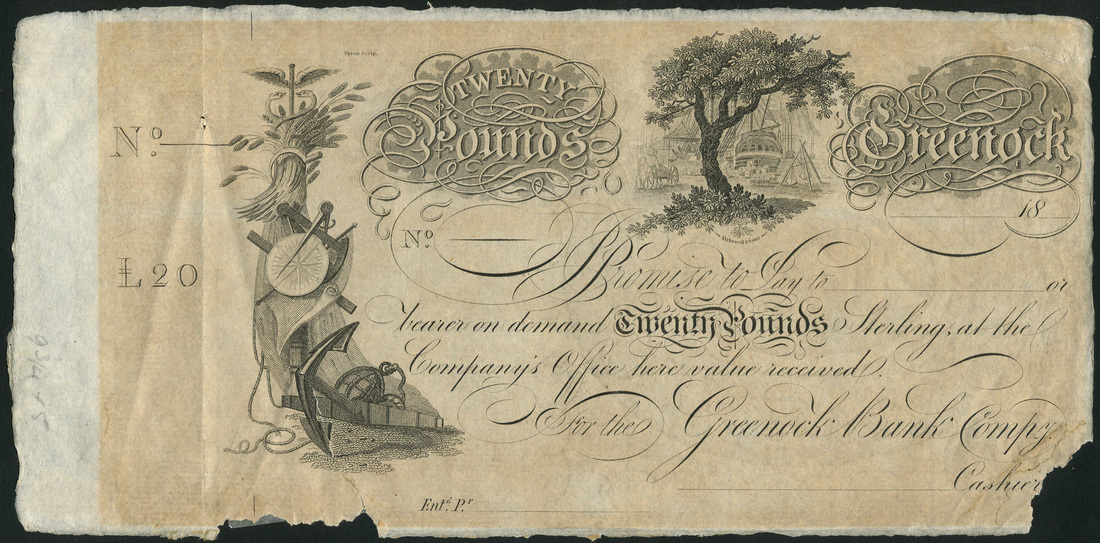 TWENTY
Pounds
Greenock
No.
18
No.
£20
I Promise to Pay to or
bearer on demand Twenty Pounds Sterling, at the
Company's Office here value received.
For the Greenock Bank Compy
Cashier
Entd. Pr.